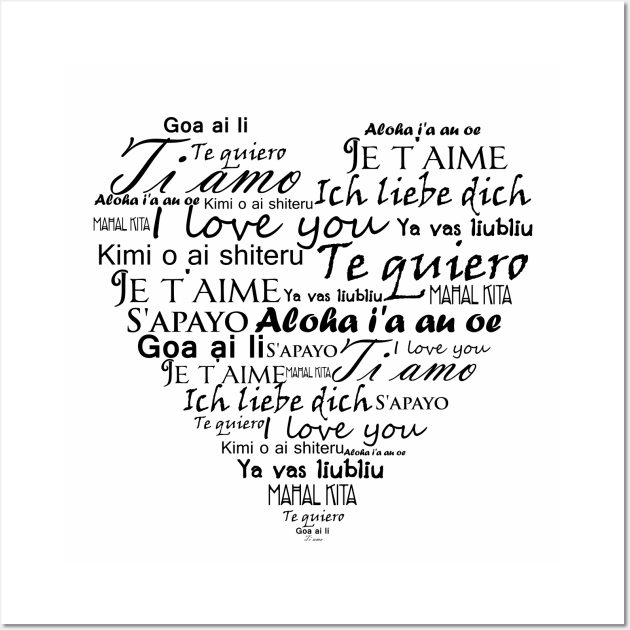 Goa ai li Aloha i'a au oe
Te quiero JE T'AIME
Ti amo Ich liebe dich
Aloha i'a au oe Kimi o ai shiteru
MAHAL KITA I love you Ya vas liubliu
Kimi o ai shiteru Te quiero
JE T'AIME Ya vas liubliu MAHAL KITA
S'APAYO Aloha i'a au oe
Goa ai li S'APAYO Ti amo I love you
JE T'AIME MAHAL KITA
Ich liebe dich S'APAYO
Te quiero I love you
Kimi o ai shiteru Aloha i'a au oe
Ya vas liubliu
MAHAL KITA
Te quiero
Goa ai li
Ti amo